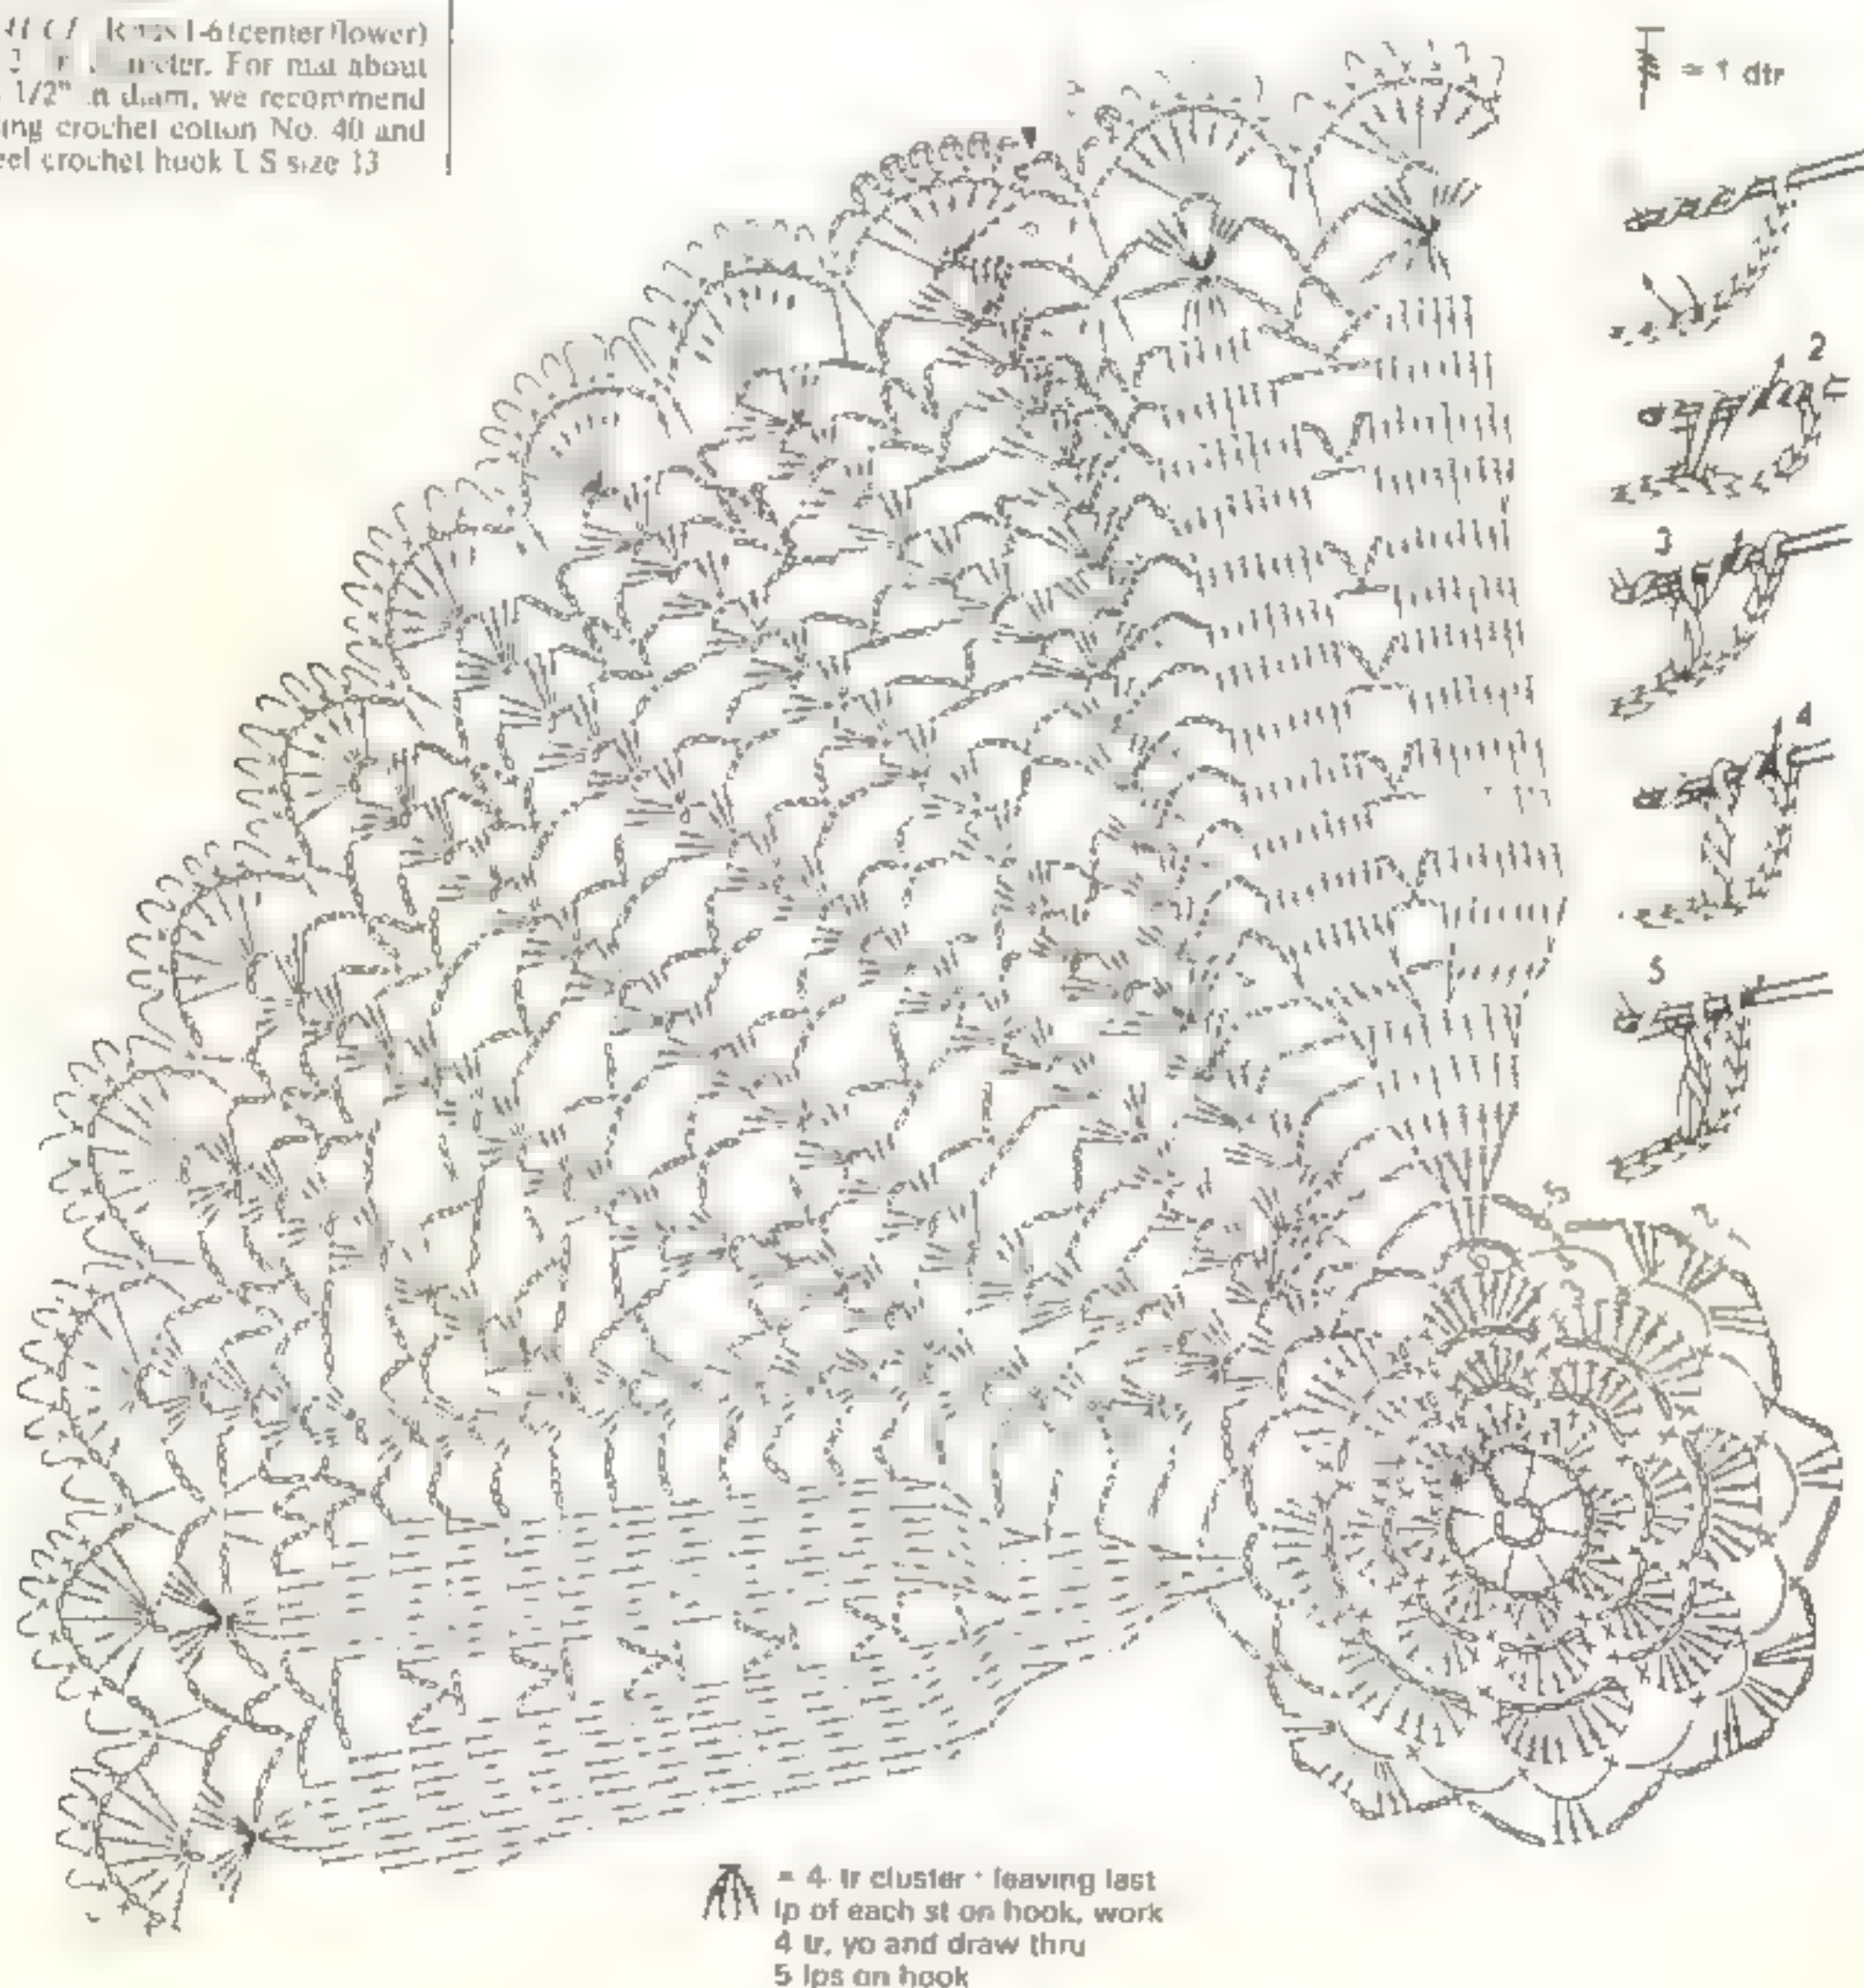 1-6 (center flower)
For mat about
1/2" in diam, we recommend
crochet cotton No. 40 and
crochet hook U S size 13
= 1 dtr
2
3
4
5
5
6
3
2
= 4 tr cluster : leaving last
lp of each st on hook, work
4 tr, yo and draw thru
5 lps on hook